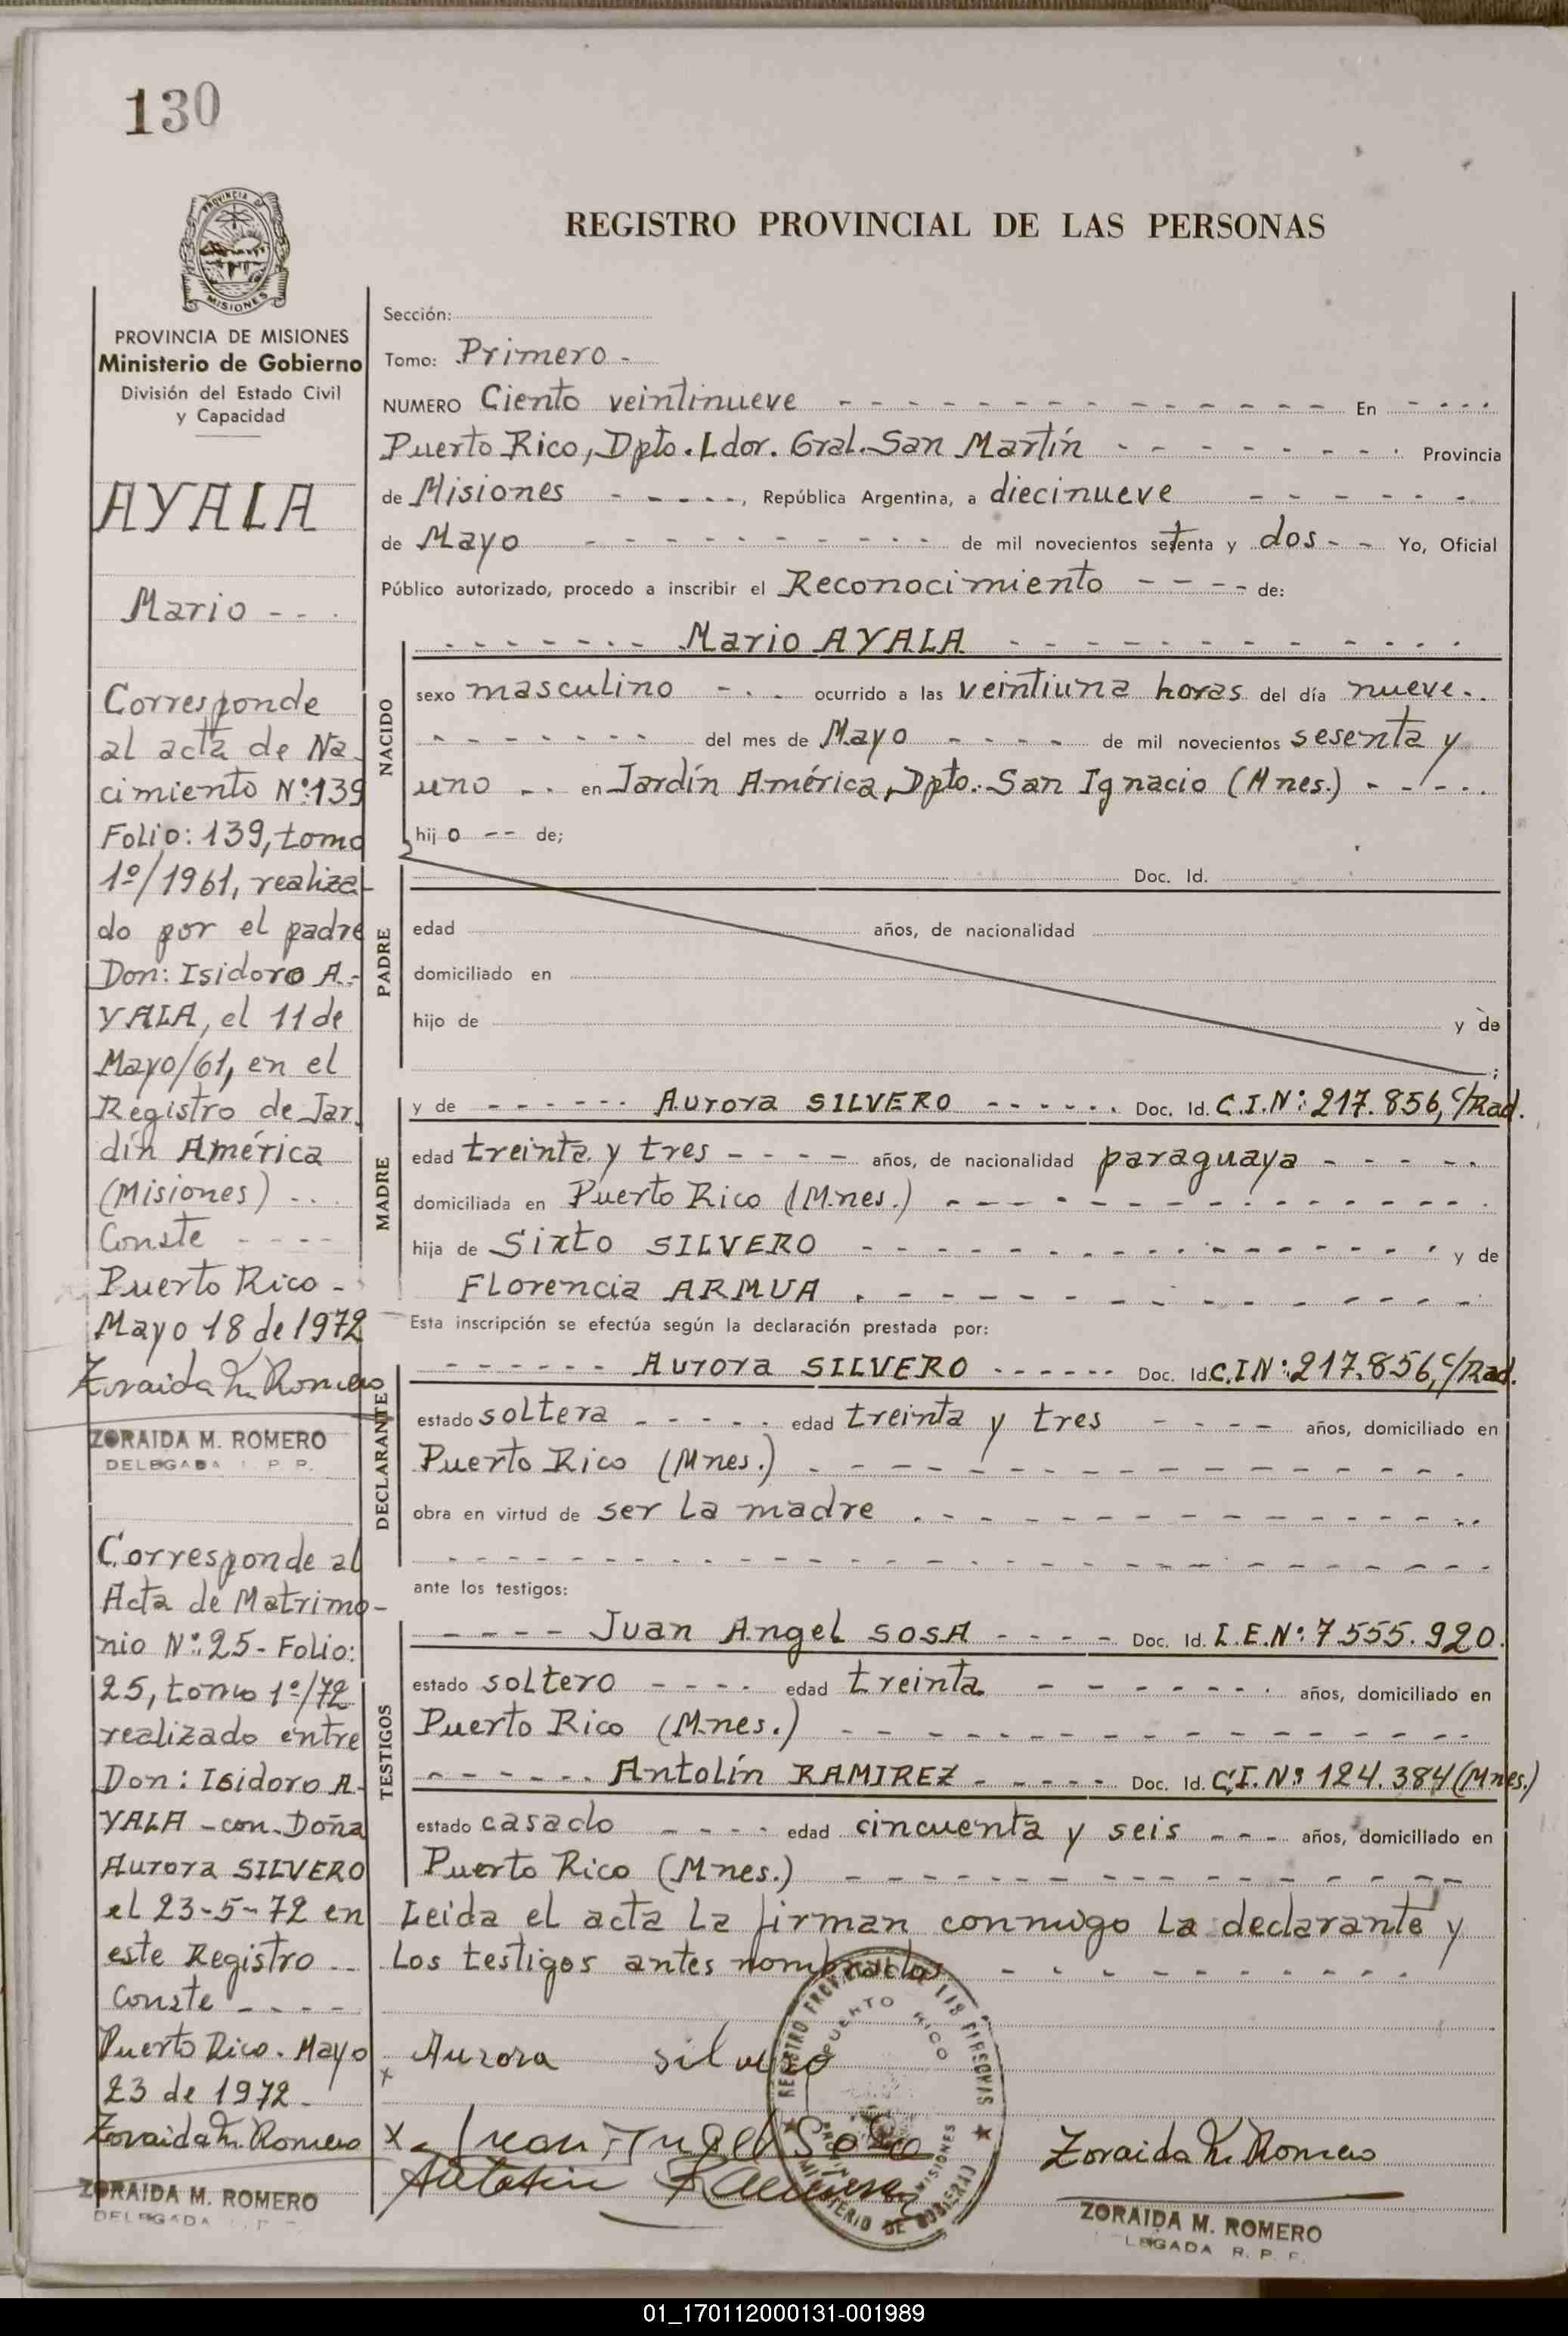 130
PROVINCIA DE
MISIONES
REGISTRO PROVINCIAL DE LAS PERSONAS
PROVINCIA DE MISIONES
Ministerio de Gobierno
División del Estado Civil
y Capacidad
AYALA
Mario - - .
Corresponde
al acta de Na
cimiento Nº:139
Folio: 139, tomo
1º/1961, realiza
do por el padre
Don: Isidoro A.-
YALA, el 11 de
Mayo/61, en el
Registro de Jar.
dín América
(Misiones) - . .
Conste - - - -
Puerto Rico -
Mayo 18 de 1972
Zoraida M. Romero
ZORAIDA M. ROMERO
DELEGADA R. P. P.
Corresponde al
Acta de Matrimo-
nio Nº:25 - Folio:
25, tomo 1º/72
realizado entre
Don: Isidoro A-
YALA - con Doña
Aurora SILVERO
el 23-5-72 en
este Registro - -
Conste - - - -
Puerto Rico. Mayo
23 de 1972 -
Zoraida M. Romero
ZORAIDA M. ROMERO
DELEGADA
Sección:
Tomo: Primero -
NUMERO Ciento veintinueve - - - - - - - - - - - - - - En - - - - -
Puerto Rico, Dpto. Ldor. Gral. San Martín - - - - - - - - - Provincia
de Misiones - - - - - -, República Argentina, a diecinueve - - - - - -
de Mayo - - - - - - - - - - - de mil novecientos setenta y dos - - Yo, Oficial
Público autorizado, procedo a inscribir el Reconocimiento - - - - - de:
- - - - - - - Mario AYALA - - - - - - - - - - - -
NACIDO
sexo masculino - . - ocurrido a las veintiuna horas del día nueve. .
- - - - - - - - del mes de Mayo - - - - - de mil novecientos sesenta y
uno - . en Jardín América, Dpto. San Ignacio (Mnes.) - - - - -
hij o - - de;
PADRE
Doc. Id.
edad años, de nacionalidad
domiciliado en
hijo de y de
;
MADRE
y de - - - - - - Aurora SILVERO - - - - - - Doc. Id. C.I.Nº: 217.856, c/Rad.
edad treinta y tres - - - - años, de nacionalidad paraguaya - - - - -
domiciliada en Puerto Rico (Mnes.) - - - - - - - - - - - - - - -
hija de Sixto SILVERO - - - - - - - - - - - - - - - y de
Florencia ARMUA . - - - - - - - - - - - - - -
Esta inscripción se efectúa según la declaración prestada por:
DECLARANTE
- - - - - - Aurora SILVERO - - - - - - Doc. Id. C.I.Nº: 217.856, c/Rad.
estado soltera - - - - - edad treinta y tres - - - - años, domiciliado en
Puerto Rico (Mnes.) - - - - - - - - - - - - - - - -
obra en virtud de ser la madre . - - - - - - - - - - - - - -
- - - - - - - - - - - - - - - - - - - - - - - - -
ante los testigos:
TESTIGOS
- - - - Juan Angel SOSA - - - - Doc. Id. L.E.Nº: 7555.920.
estado soltero - - - - edad treinta - - - - - - - - años, domiciliado en
Puerto Rico (Mnes.) - - - - - - - - - - - - - - - -
- - - - - - Antolín RAMIREZ - - - - - Doc. Id. C.I. Nº 124.384 (Mnes.)
estado casado - - - - edad cincuenta y seis - - - años, domiciliado en
Puerto Rico (Mnes.) - - - - - - - - - - - - - - -
Leida el acta la firman conmigo la declarante y
los testigos antes nombrados - - - - - - - - - -
REGISTRO PROVINCIAL DE LAS PERSONAS
PUERTO RICO
MISIONES
MINISTERIO DE GOBIERNO
Aurora silvero
x
x Juan Angel Sosa
Antolin Ramirez
Zoraida M. Romero
ZORAIDA M. ROMERO
DELEGADA R. P. P.
01_170112000131-001989